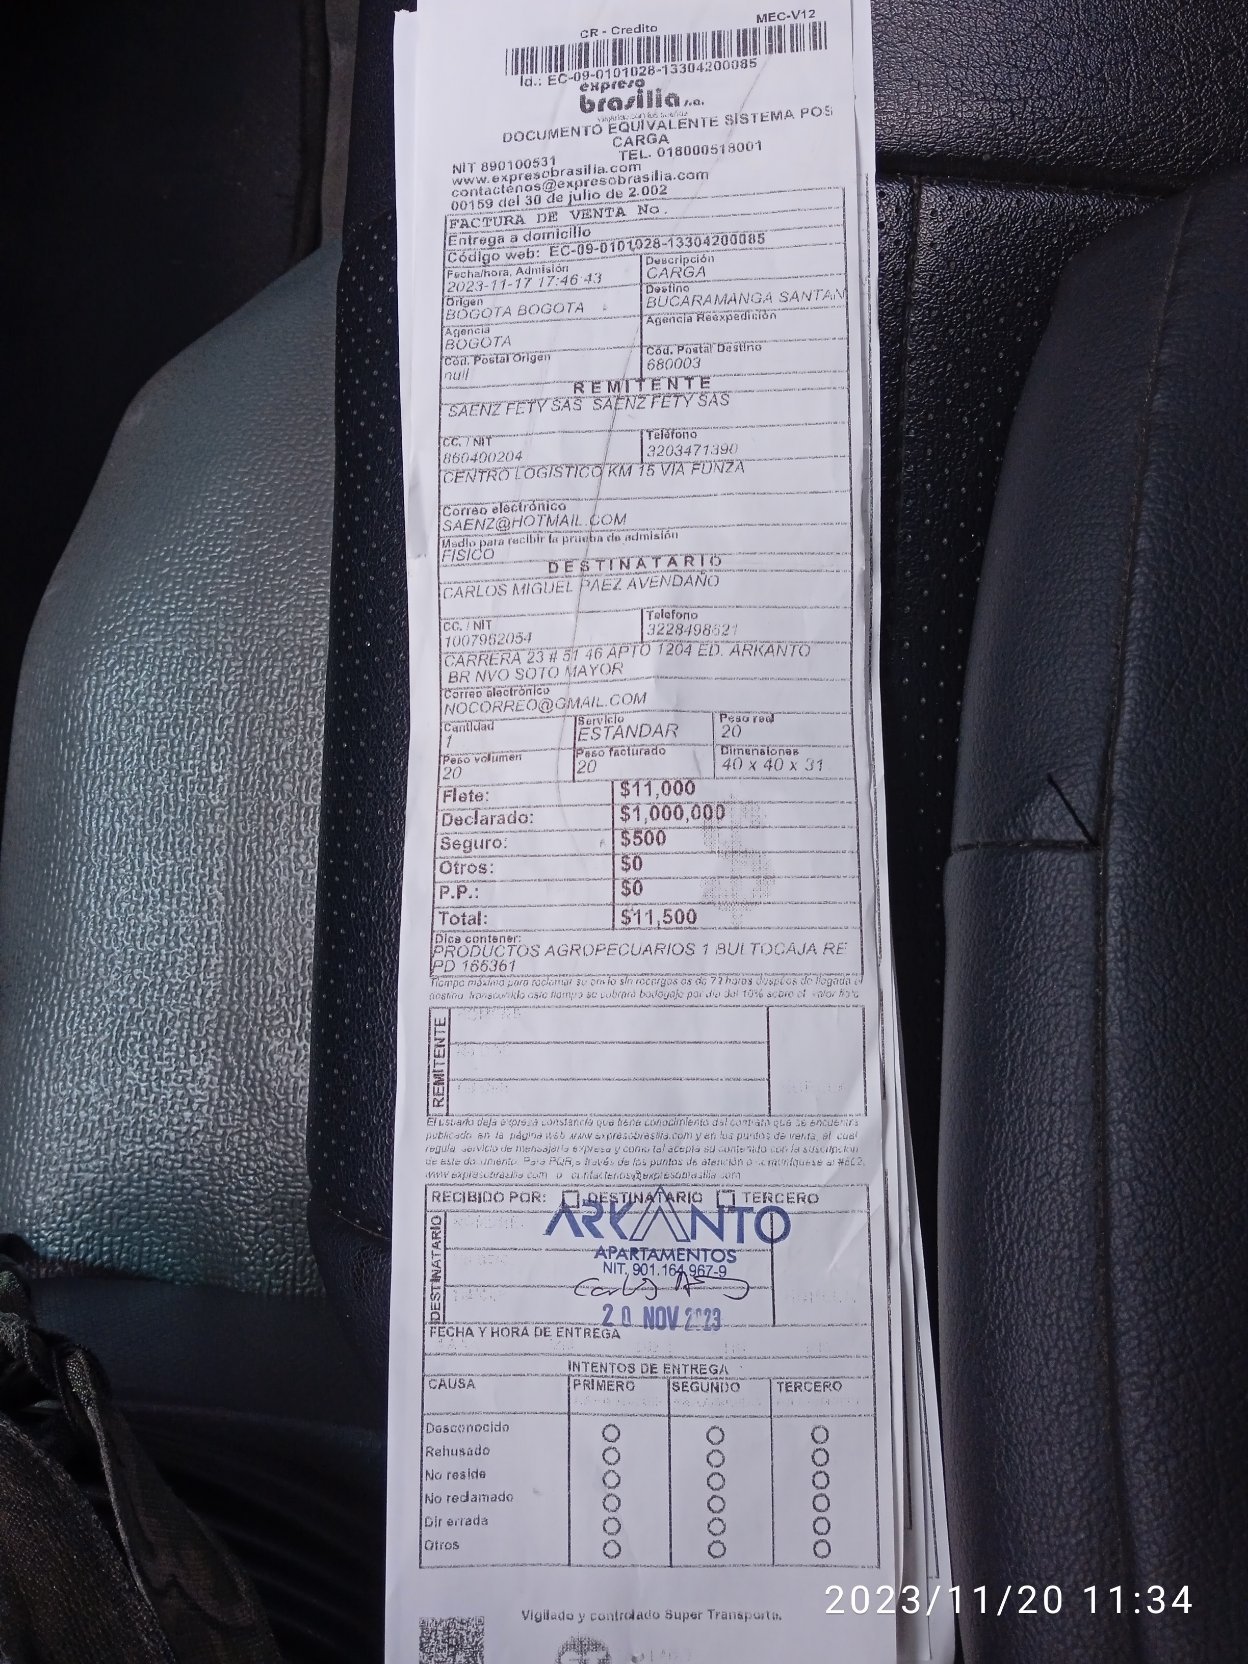 CR - Credito
MEC-V12
Id.: EC-09-0101028-13304200085
expreso
brasilia s.a.
DOCUMENTO EQUIVALENTE SISTEMA POS
CARGA
NIT 890100531
TEL. 018000518001
www.expresobrasilia.com
contactenos@expresobrasilia.com
00159 del 30 de julio de 2.002
FACTURA DE VENTA No.
Entrega a domicilio
Código web: EC-09-0101028-13304200085
Fecha/hora, Admisión
2023-11-17 17:46:43
Descripción
CARGA
Origen
BOGOTA BOGOTA
Destino
BUCARAMANGA SANTAN
Agencia
BOGOTA
Agencia Reexpedición
Cód. Postal Origen
null
Cód. Postal Destino
680003
REMITENTE
SAENZ FETY SAS SAENZ FETY SAS
CC. / NIT
860400204
Teléfono
3203471390
CENTRO LOGISTICO KM 15 VIA FUNZA
Correo electrónico
SAENZ@HOTMAIL.COM
Medio para recibir la prueba de admisión
FISICO
DESTINATARIO
CARLOS MIGUEL PAEZ AVENDAÑO
CC. / NIT
1007962054
Teléfono
3228498621
CARRERA 23 # 51 46 APTO 1204 ED. ARKANTO
BR NVO SOTO MAYOR
Correo electrónico
NOCORREO@GMAIL.COM
Cantidad
1
Servicio
ESTANDAR
Peso real
20
Peso volumen
20
Peso facturado
20
Dimensiones
40 x 40 x 31
Flete: $11,000
Declarado: $1,000,000
Seguro: $500
Otros: $0
P.P.: $0
Total: $11,500
Dice contener:
PRODUCTOS AGROPECUARIOS 1 BULTOCAJA RE
PD 166361
Tiempo máximo para reclamar su envío sin recargos es de 72 horas después de llegada a
destino. Transcurrido este tiempo se cobrará bodegaje por día del 10% sobre el valor flete
REMITENTE
El usuario deja expresa constancia que tiene conocimiento del contrato que se encuentra
publicado en la página web www.expresobrasilia.com y en los puntos de venta, el cual
regula servicio de mensajería expresa y como tal acepta su contenido con la suscripción
de este documento. Para PQR,s través de los puntos de atención o comuníquese al #602,
www.expresobrasilia.com o contactenos@expresobrasilia.com
RECIBIDO POR: DESTINATARIO TERCERO
DESTINATARIO
ARKANTO
APARTAMENTOS
NIT. 901.164.967-9
20 NOV 2023
FECHA Y HORA DE ENTREGA
INTENTOS DE ENTREGA
CAUSA PRIMERO SEGUNDO TERCERO
Desconocido
Rehusado
No reside
No reclamado
Dir errada
Otros
Vigilado y controlado Super Transporte.
2023/11/20 11:34